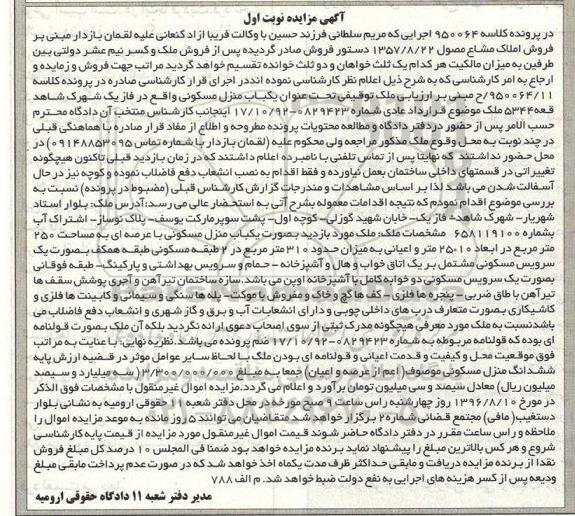 آگهی مزایده نوبت اول
در پرونده کلاسه 950064 اجرایی که مریم سلطانی فرزند حسین با وکالت فریبا آزاد کنعانی علیه لقمان بازدار مبنی بر
فروش املاک مشاع مصول 1357/8/22 دستور فروش صادر گردیده پس از فروش ملک و کسر نیم عشر دولتی بین
طرفین به میزان مالکیت هر کدام یک ثلث خواهان و دو ثلث خوانده تقسیم خواهد گردید مراتب جهت فروش و مزایده و
ارجاع به امر کارشناسی که به شرح ذیل اعلام نظر کارشناسی نموده اند در اجرای قرار کارشناسی صادره در پرونده کلاسه
950064/11/ح مبنی بر ارزیابی ملک توقیفی تحت عنوان یکباب منزل مسکونی واقع در فاز یک شهرک شاهد
قطعه 5344 ملک موضوع قرارداد عادی شماره 0829423-17/10/92 اینجانب کارشناس منتخب آن دادگاه محترم
حسب الامر پس از حضور در دفتر دادگاه و مطالعه محتویات پرونده مطروحه و اطلاع از مفاد قرار صادره با هماهنگی قبلی
در چند نوبت به محل وقوع ملک مذکور مراجعه ولی محکوم علیه (لقمان بازدار با شماره تماس 09148853095) در
محل حضور نداشتند که نهایتا پس از تماس تلفنی با نامبرده اعلام داشتند که در زمان بازدید قبلی تاکنون هیچگونه
تغییراتی در قسمتهای داخلی ساختمان بعمل نیاورده و فقط اقدام به نصب انشعاب دفع فاضلاب نموده و کوچه نیز در حال
آسفالت شدن می باشد لذا بر اساس مشاهدات و مندرجات گزارش کارشناس قبلی (مضبوط در پرونده) نسبت به
بررسی موضوع اقدام نمودم که نتیجه اقدامات معموله بشرح آتی به استحضار عالی می رسد: آدرس ملک: بلوار استاد
شهریار- شهرک شاهد- فاز یک- خیابان شهید گوزلی- کوچه اول- پشت سوپرمارکت یوسف- پلاک نوساز- اشتراک آب
بشماره 658119100 مشخصات ملک: ملک مورد بازدید بصورت یکباب منزل مسکونی با عرصه ای به مساحت 250
متر مربع در ابعاد 10×25 متر و اعیانی به میزان حدود 310 متر مربع در 2 طبقه مسکونی طبقه همکف بصورت یک
سرویس مسکونی مشتمل بر یک اتاق خواب و هال و آشپزخانه - حمام و سرویس بهداشتی و پارکینگ - طبقه فوقانی
بصورت یک سرویس مسکونی دو خوابه کامل با آشپزخانه اوپن می باشد. سازه ساختمان تیرآهن و آجری پوشش سقف ها
تیرآهن با طاق ضربی- پنجره ها فلزی- کف ها گچ و خاک و مفروش با موکت- پله ها سنگی و سیمانی و کابینت ها فلزی و
کاشیکاری بصورت متعارف درب های داخلی چوبی و دارای انشعابات آب و برق و گاز شهری و انشعاب دفع فاضلاب می
باشد نسبت به ملک مورد معرفی هیچگونه مدرک ثبتی از سوی اصحاب دعوی ارائه نگردید بلکه آن ملک بصورت قولنامه
ای بوده که قولنامه مربوطه به شماره 0829423-17/10/92 ضم پرونده می باشد. نظریه نهایی: با عنایت به مراتب
فوق موقعیت محل و کیفیت و قدمت اعیانی و قولنامه ای بودن ملک با لحاظ سایر عوامل موثر در قضیه ارزش پایه
ششدانگ منزل مسکونی موصوف (اعم از عرصه و اعیان) جمعا به مبلغ 3/300/000/000 (سه میلیارد و سیصد
میلیون ریال) معادل سیصد و سی میلیون تومان برآورد و اعلام می گردد. مزایده اموال غیرمنقول با مشخصات فوق الذکر
در مورخ 1396/8/10 روز چهارشنبه راس ساعت 9 صبح الی در محل دفتر شعبه 11 حقوقی ارومیه به نشانی بلوار
دستغیب (مافی) مجتمع قضائی شماره 2 برگزار خواهد شد. متقاضیان می توانند 5 روز مانده به موعد مزایده اموال را
ملاحظه و راس ساعت مقرر در دفتر دادگاه حاضر شوند قیمت اموال غیرمنقول مورد مزایده از قیمت پایه کارشناسی
شروع و هر کس بالاترین مبلغ را پیشنهاد نماید برنده مزایده خواهد بود ضمنا فی المجلس 10 درصد کل مبلغ فروش
نقدا از برنده مزایده دریافت و مابقی حداکثر ظرف مدت یکماه اخذ خواهد شد که در صورت عدم پرداخت مابقی مبلغ
ودیعه پس از کسر هزینه های اجرایی به نفع دولت ضبط خواهد شد. م الف 788
مدیر دفتر شعبه 11 دادگاه حقوقی ارومیه